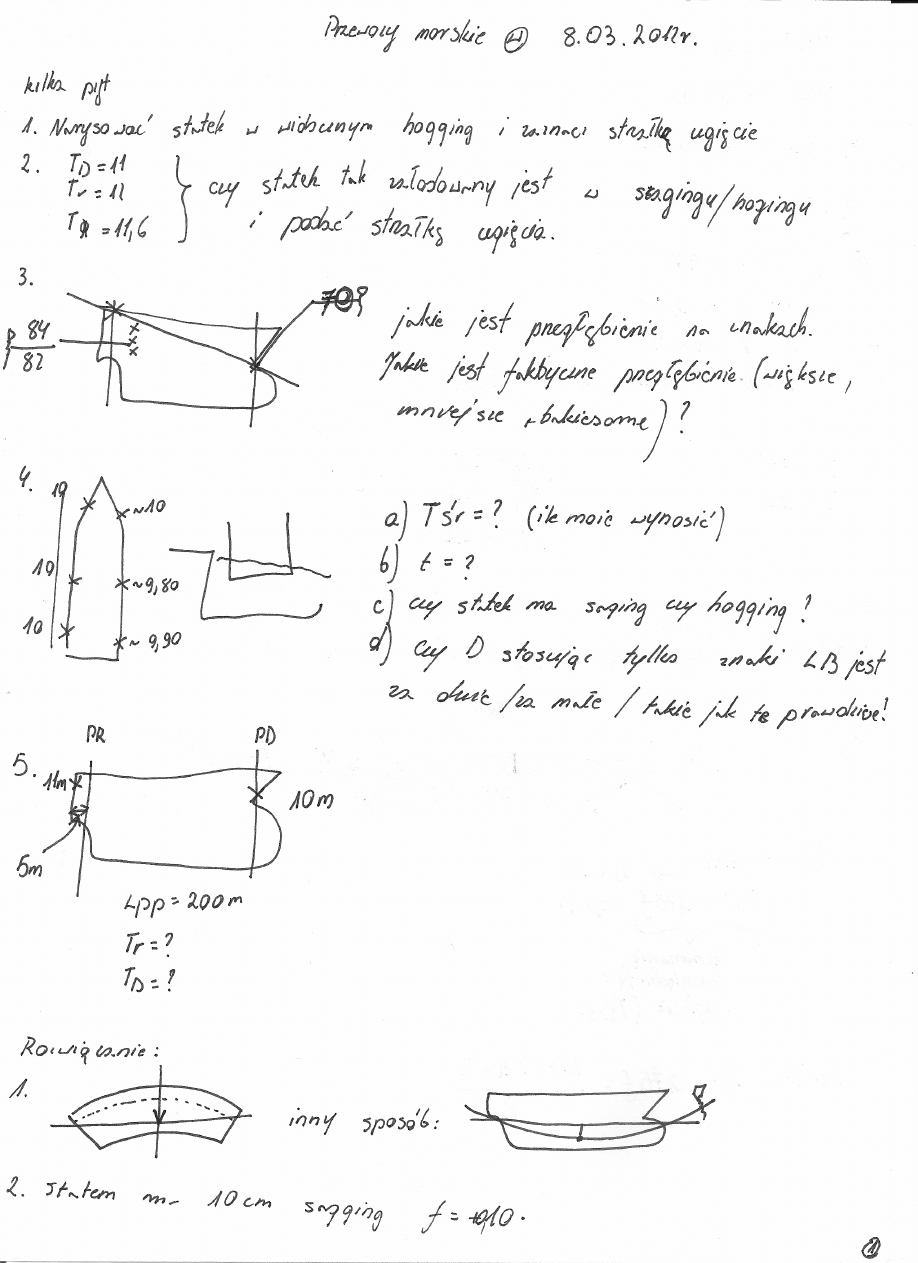 Przewozy morskie (W) 8.03.2012r.
kilka pyt
1. Narysować statek w widocznym hogging i zaznacz strzałką ugięcie
2. TD = 11
Tr = 12
TR = 11,6
czy statek tak załadowany jest w sagingu/hogingu
i podać strzałkę ugięcia.
3.
84
82
jakie jest przegłębienie na znakach.
Jakie jest faktyczne przegłębienie. (większe,
mniejsze, takie same) ?
4.
10
~10
10
~9,80
10
~9,90
a) Tśr = ? (ile może wynosić)
b) t = ?
c) czy statek ma saging czy hogging ?
d) czy D stosując tylko znaki LB jest
za duże / za małe / takie jak te prawdziwe!
5.
PR
PD
11m
10m
5m
Lpp = 200m
Tr = ?
TD = ?
Rozwiązanie:
1.
inny sposób:
2. statem ma 10cm sagging f = 0,10.
1